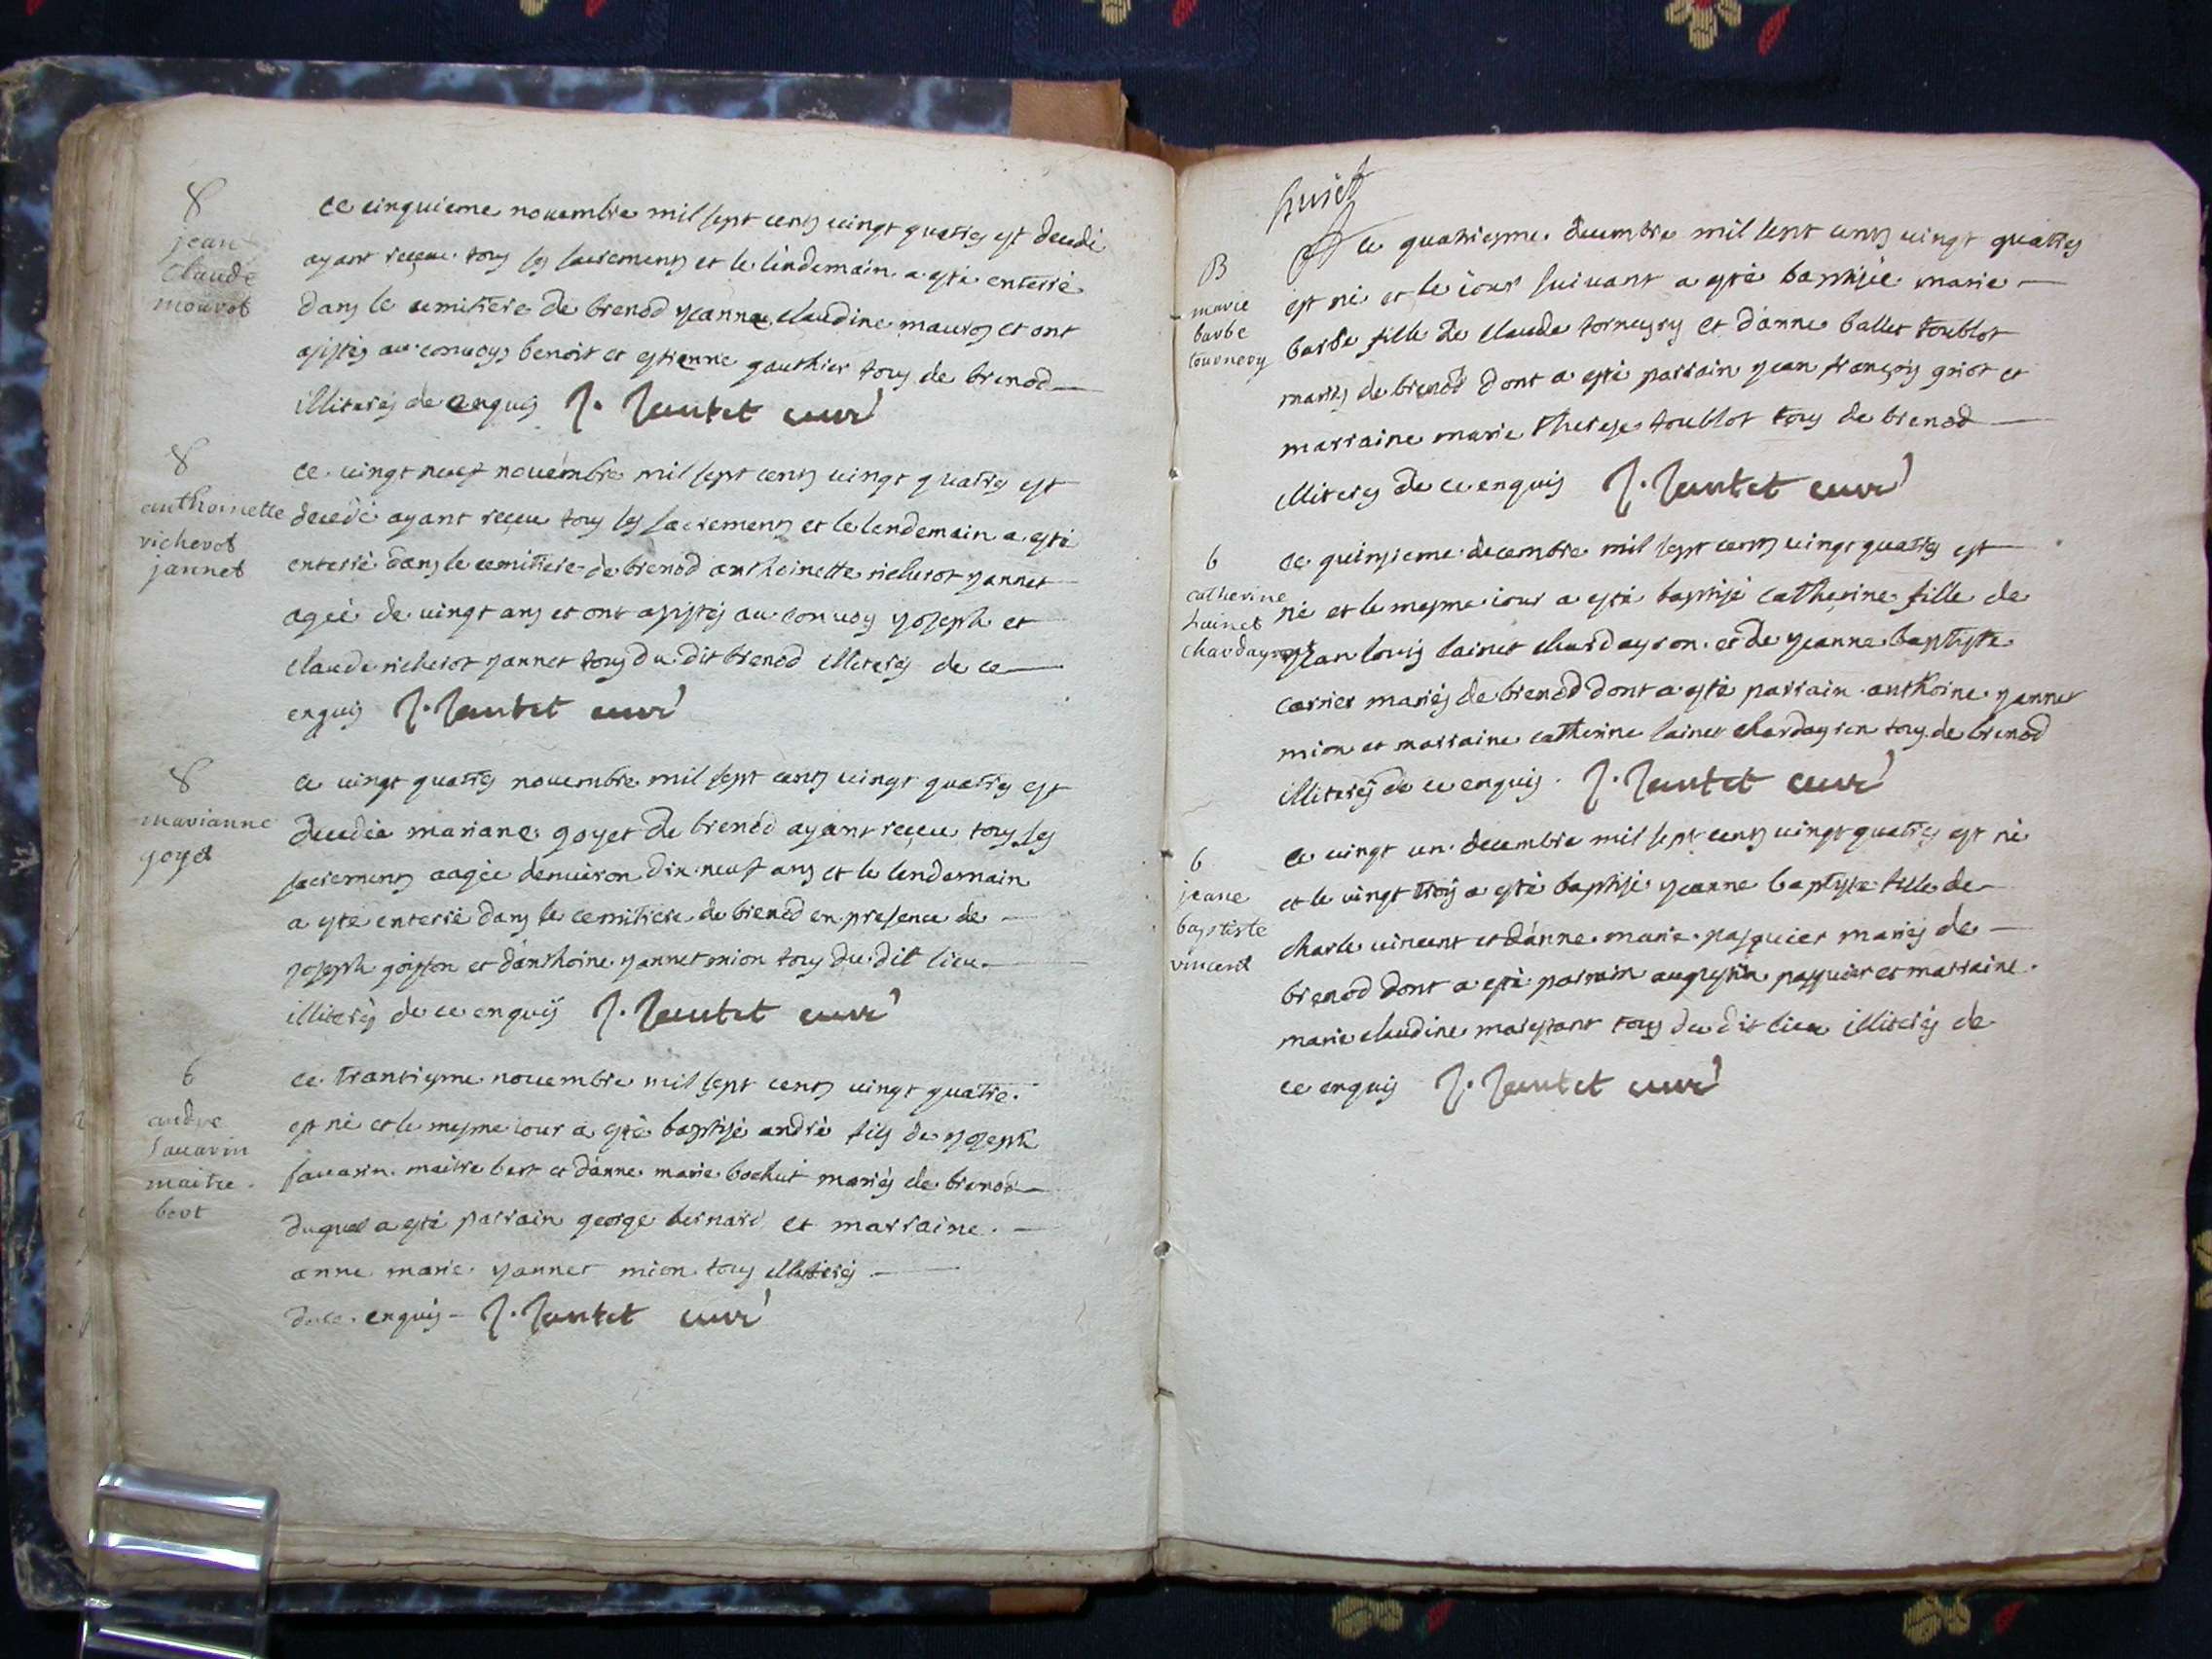 8
jean
claude
mourot
ce cinquieme novembre mil sept cents vingt quatres est decedé
ayant receue tous les sacrements et le lindemain a esté enterré
dans le cemitiere de brenod yeanne claudine mauros et ont
assistés au convoys benoit et estienne gauthier tous de brenod
illiterés de enquis J. Jantet curé
8
anthoinette
richerot
jannet
ce vingt neuf novembre mil sept cents vingt quatres est
decedé ayant receu tous les sacrements et le lendemain a esté
enterré dans le cemitiere de brenod anthoinette richerot yannet
agée de vingt ans et ont assistés au convoy yoseph et
claude richerot yannet tous du dit brenod illiterés de ce
enquis J. Jantet curé
8
marianne
goyet
ce vingt quatres novembre mil sept cents vingt quatres est
decedée mariane goyet de brenod ayant receu tous les
sacrements aagée denviron dix neuf ans et le lendemain
a esté enterré dans le cemitiere de brenod en presence de
yoseph goisson et danthoine yannet mion tous du dit lieu
illiterés de ce enquis J. Jantet curé
6
andre
savarin
maitre
bert
ce trantiesme novembre mil sept cents vingt quatre
est né et le mesme iour a esté baptisé andré fils de yoseph
savarin maitre bert et danne marie bochut mariés de brenod
duquel a esté parrain george bernard et marraine
anne marie yannet mion tous illiterés
de ce enquis J. Jantet curé
B
marie
barbe
tournery
ce quatriesme decembre mil sept cents vingt quatres
est né et le iour suivant a esté baptisée marie
barbe fille de claude tornesry et danne ballet toublot
mariés de brenod dont a esté parrain yean françois griot et
marraine marie therese toublot tous de brenod
illiteres de ce enquis J. Jantet curé
6
catherine
lainet
chardayron
ce quinsieme decembre mil sept cents vingt quattes est
né et le mesme iour a esté baptisé catherine fille de
yean louis lainet chardayron et de yeanne baptiste
carrier mariés de brenod dont a esté parrain anthoine yannet
mion et marraine catherine lainet chardayron tous de brenod
illiterés de ce enquis J. Jantet curé
6
jeane
baptiste
vincent
ce vingt un decembre mil sept cents vingt quatres est né
et le vingt trois a esté baptisé yeanne baptiste fille de
charle vincent et danne marie pasquier mariés de
brenod dont a esté parrain augustin pasquier et marraine
marie claudine marestant tous du dit lieu illiterés de
ce enquis J. Jantet curé